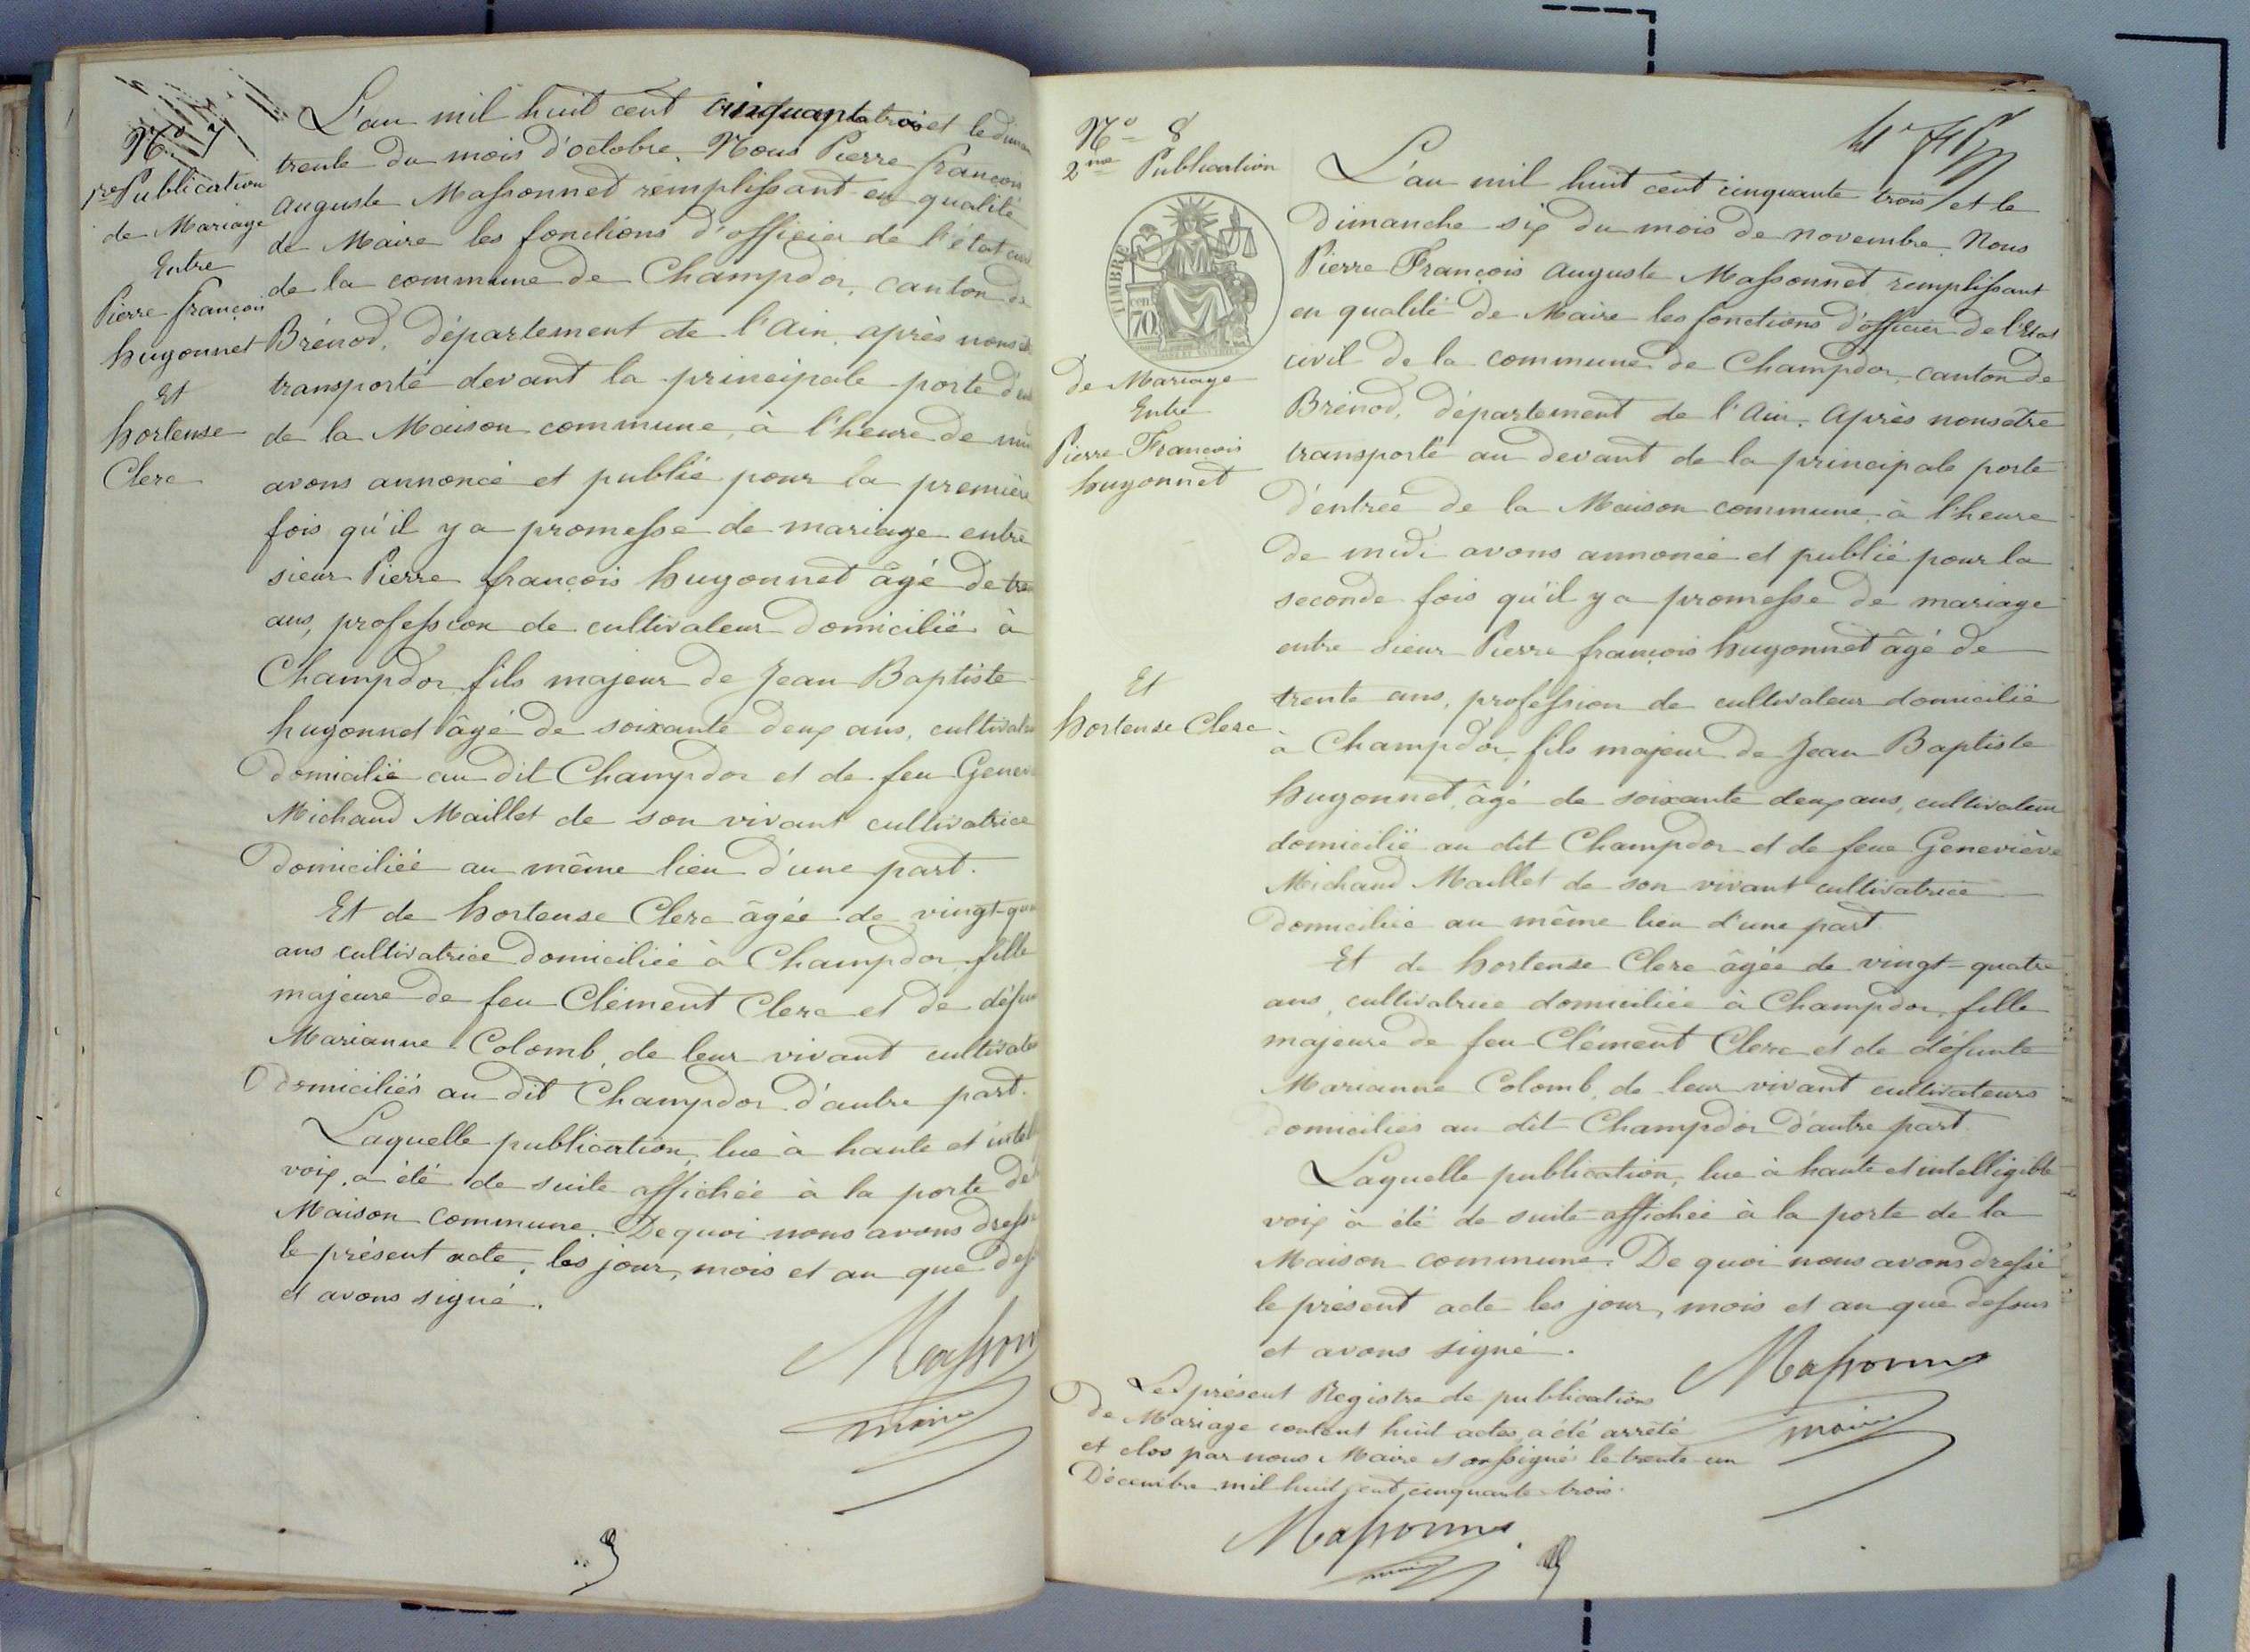 N° 7
1re Publication
de Mariage
Entre
Pierre françois
hugonnet
Et
hortense
Clerc
L'an mil huit cent cinquante trois et le
trente du mois d'octobre. Nous Pierre françois
Auguste Massonnet remplissant en qualité
de Maire les fonctions d'officier de l'état
de la commune de Champdor, canton de
Brénod, département de l'Ain, après nous
transporté devant la principale porte
de la Maison commune, à l'heure de
avons annoncé et publié pour la première
fois qu'il y a promesse de mariage entre
sieur Pierre françois hugonnet âgé de
ans, profession de cultivateur domicilié à
Champdor fils majeur de Jean Baptiste
hugonnet âgé de soixante deux ans,
domicilié au dit Champdor et de feu
Michaud Maillet de son vivant cultivatrice
domiciliée au même lieu d'une part.
Et de hortense Clerc âgée de vingt
ans cultivatrice domiciliée à Champdor, fille
majeure de feu Clément Clerc et de
Marianne Colomb, de leur vivant
Domiciliés au dit Champdor d'autre part.
Laquelle publication, lue à haute et
voix, a été de suite affichée à la porte de
Maison commune. De quoi nous avons
le présent acte, les jour, mois et an que
et avons signé.
maire
N° 8
2me Publication
TIMBRE
70
de Mariage
Entre
Pierre François
hugonnet
Et
hortense Clerc
L'an mil huit cent cinquante trois et le
dimanche six du mois de novembre. Nous
Pierre François Auguste Massonnet remplissant
en qualité de Maire les fonctions d'officier de l'Etat
civil de la commune de Champdor, canton de
Brénod, département de l'Ain. Après nous être
transporté au devant de la principale porte
d'entrée de la Maison commune, à l'heure
de midi avons annoncé et publié pour la
seconde fois qu'il y a promesse de mariage
entre sieur Pierre françois hugonnet âgé de
trente ans, profession de cultivateur domicilié
à Champdor, fils majeur de Jean Baptiste
hugonnet, âgé de soixante deux ans, cultivateur
domicilié au dit Champdor et de feue Geneviève
Michaud Maillet de son vivant cultivatrice
domiciliée au même lieu d'une part
Et de hortense Clerc âgée de vingt-quatre
ans, cultivatrice domiciliée à Champdor, fille
majeure de feu Clément Clerc et de défunte
Marianne Colomb, de leur vivant cultivateurs
domiciliés au dit Champdor d'autre part
Laquelle publication, lue à haute et intelligible
voix à été de suite affichée à la porte de la
Maison commune. De quoi nous avons dressé
le présent acte les jour, mois et an que dessus
et avons signé.
Massonnet
maire
Le présent Registre de publications
de Mariage contenant huit actes, a été arrêté
et clos par nous Maire soussigné le trente un
Décembre mil huit cent cinquante trois.
Massonnet
maire